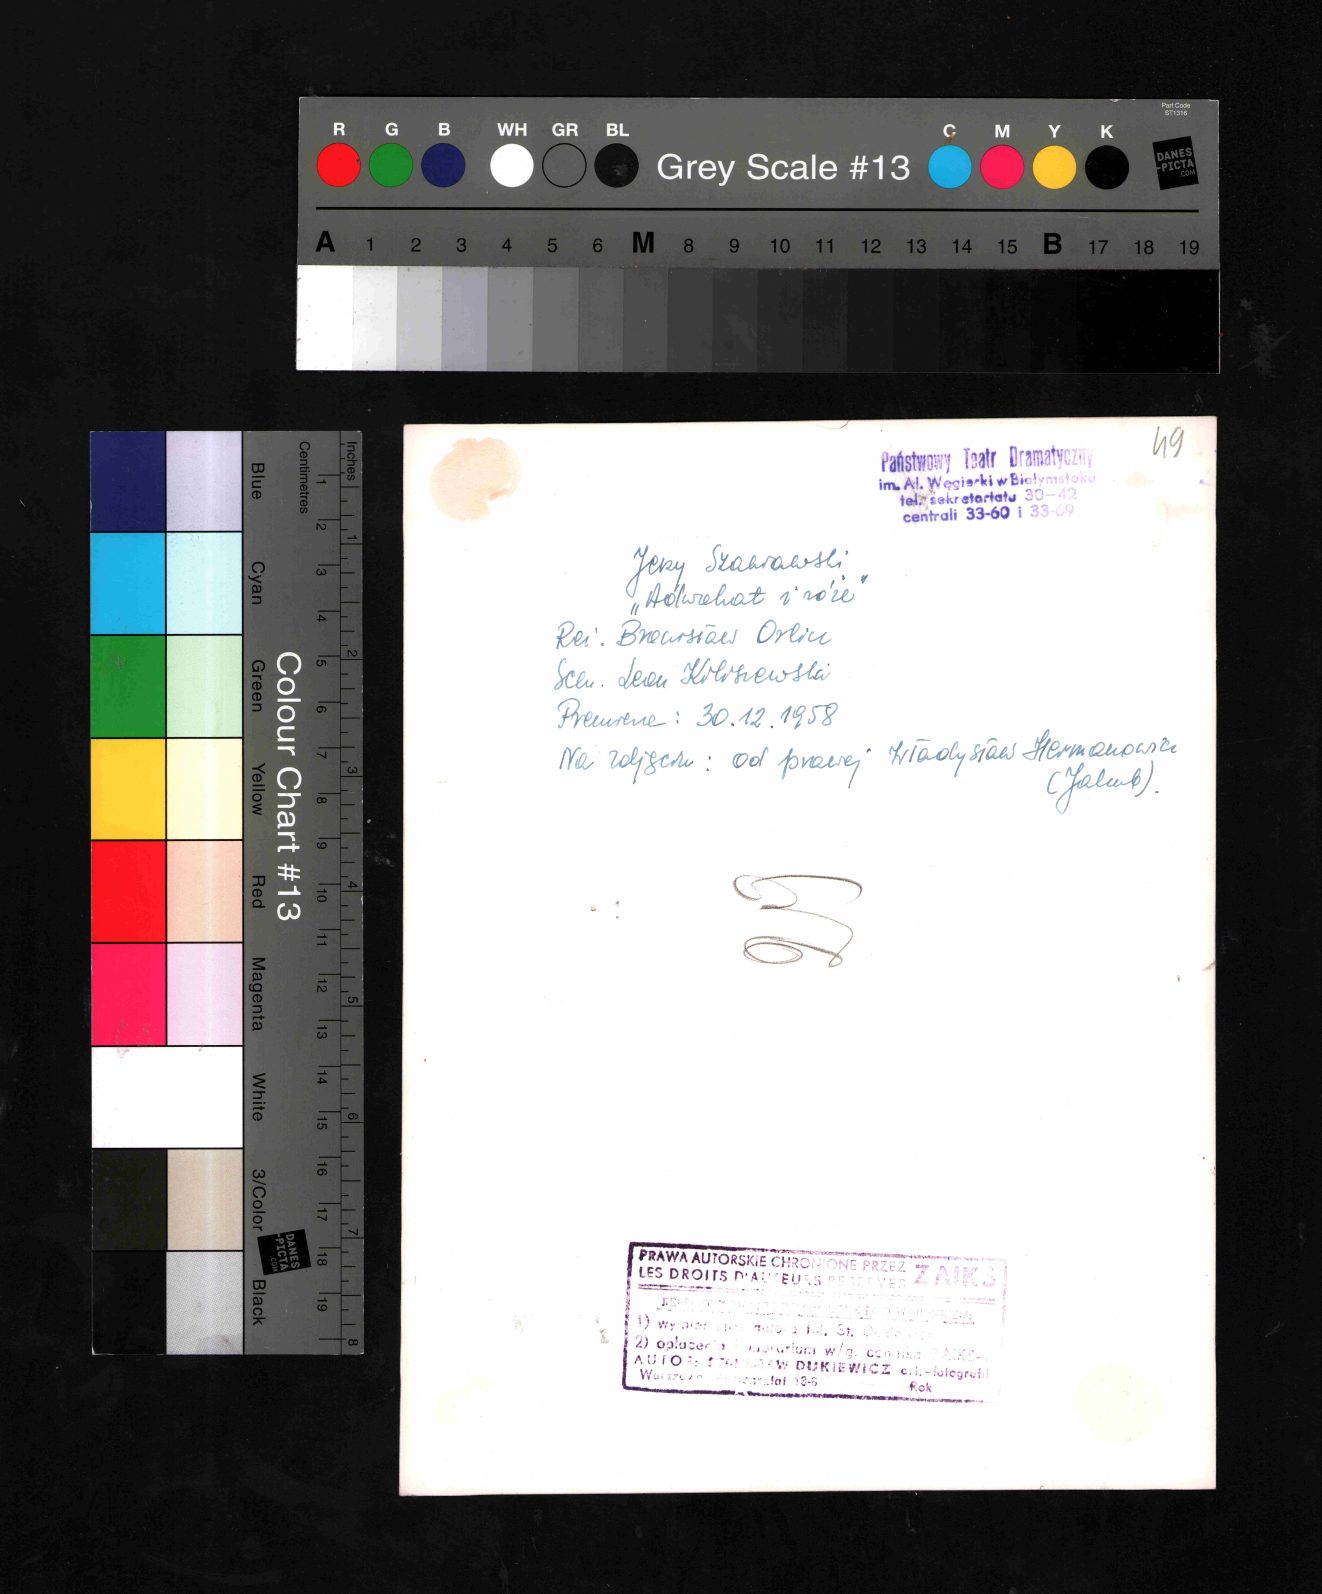 Part Code
ST1316
R G B WH GR BL Grey Scale #13 C M Y K
DANES
-PICTA
.COM
A 1 2 3 4 5 6 M 8 9 10 11 12 13 14 15 B 17 18 19
Colour Chart #13
Blue
Cyan
Green
Yellow
Red
Magenta
White
3/Color
Black
Centimetres
1 2 3 4 5 6 7 8 9 10 11 12 13 14 15 16 17 18 19
Inches
1 2 3 4 5 6 7 8
DANES
-PICTA
.COM
49
Państwowy Teatr Dramatyczny
im. Al. Węgierki w Białymstoku
tel. sekretariatu 30-42
centrali 33-60 i 33-69
Jerzy Szaniawski
„Adwokat i róże"
Reż. Bronisław Orlicz
Scen. Leon Kołoszewski
Premiera: 30.12.1958
Na zdjęciu: od prawej Władysław Hermanowicz
(Jakub).
PRAWA AUTORSKIE CHRONIONE PRZEZ ZAIKS
LES DROITS D'AUTEURS RESERVES
1)
2) opłacenia honorarium w/g. cennika ZAIKS-
AUTOR: STANISŁAW DUKIEWICZ art.-fotografik
Warszawa 13-6 Rok